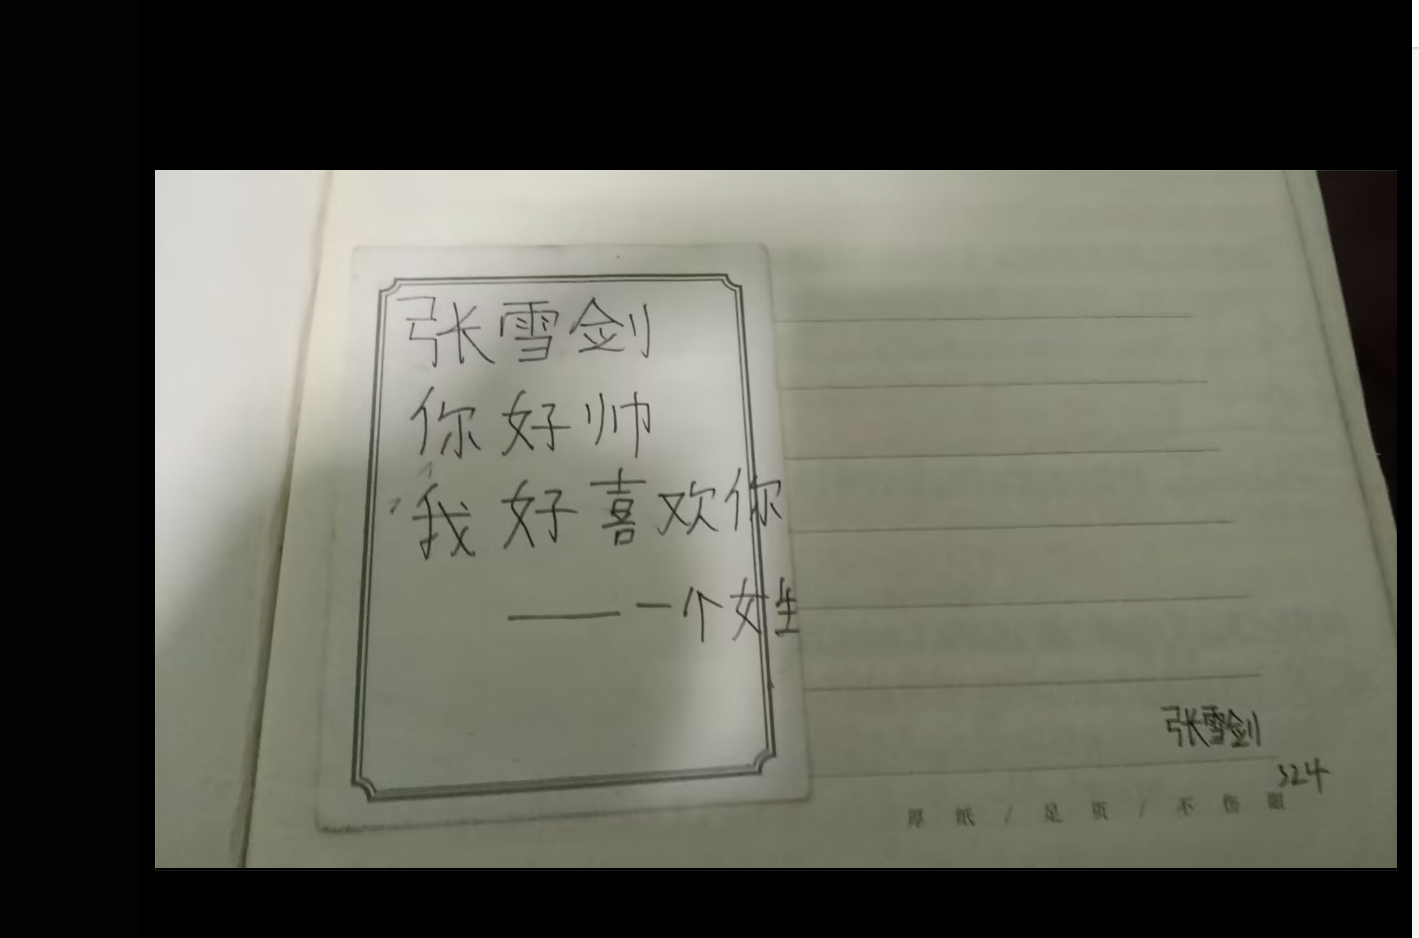 张雪剑
你好帅
我好喜欢你
——一个女生
张雪剑
324
厚纸/足页/不伤眼